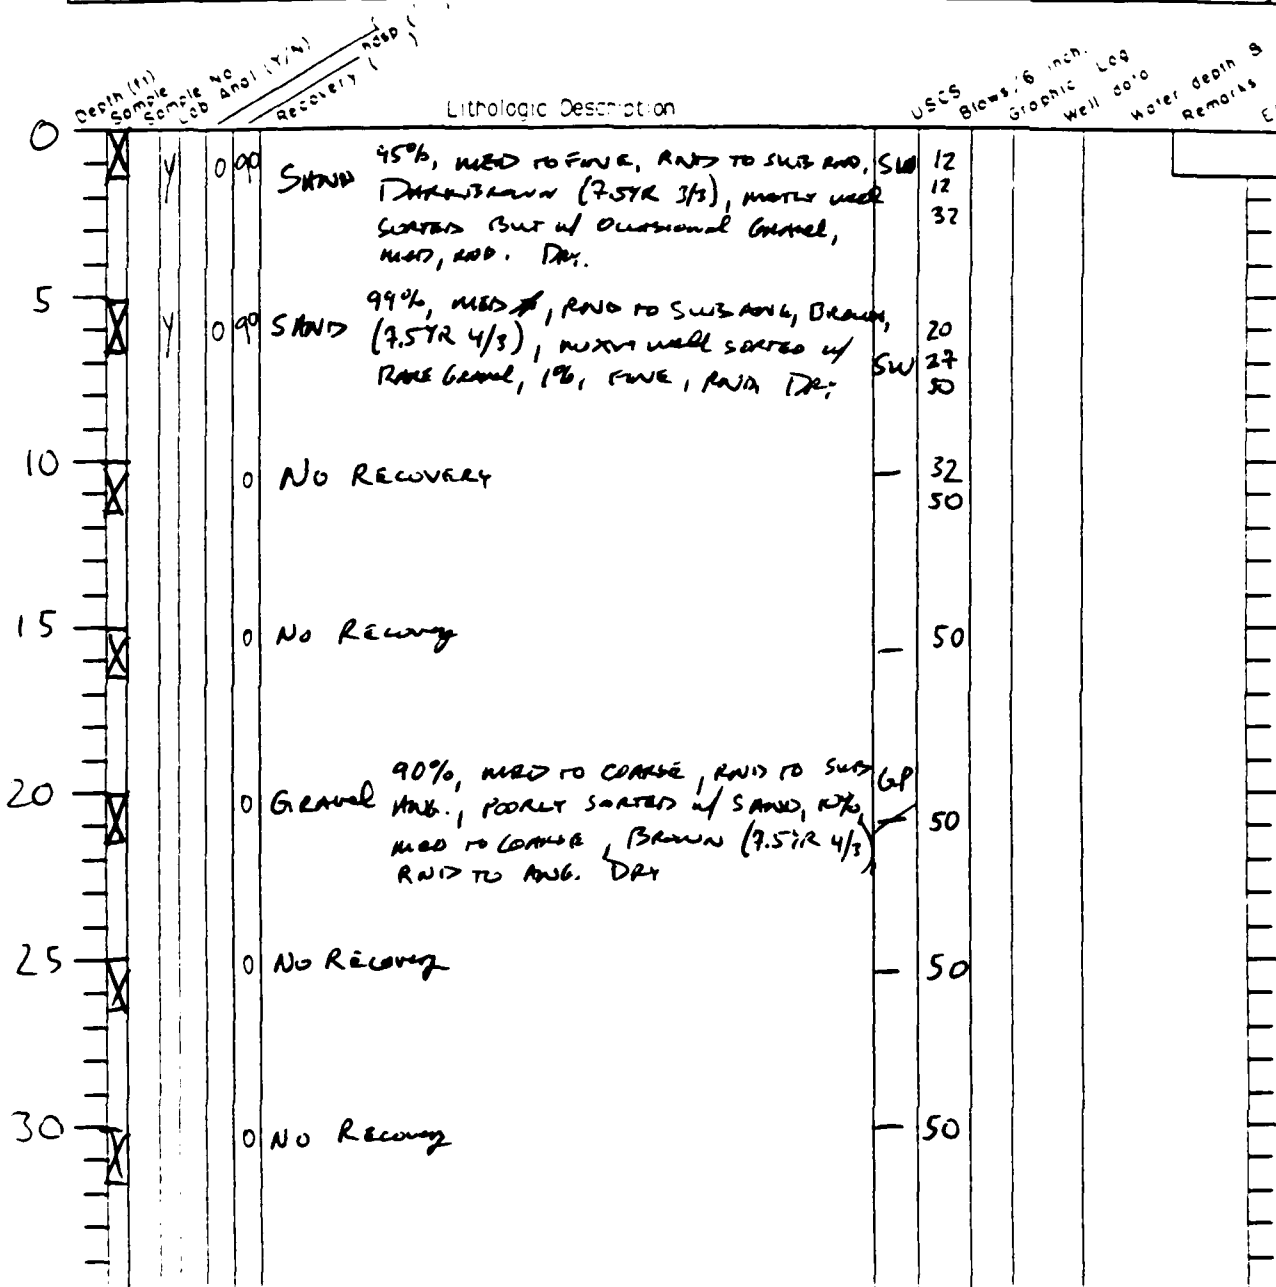 Depth (ft)
Sample
Sample No
Lab Anal (Y/N)
Recovery ( )
Lithologic Description
USCS
Blows/6 inch.
Graphic Log
Well data
Water depth &
Remarks
0
Y 0 90 SAND 95%, MED TO FINE, RND TO SUB RND, SW 12
DARK BROWN (7.5YR 3/3), MOSTLY WELL 12
SORTED BUT w/ OCCASIONAL GRAVEL, 32
MED, RND. DRY.
5
Y 0 90 SAND 99%, MED, RND TO SUB ANG, BROWN, 20
(7.5YR 4/3), WELL SORTED w/ SW 27
RARE GRAVEL, 1%, FINE, RND. DRY 50
10 0 NO RECOVERY — 32
50
15 0 No Recovery — 50
20 0 GRAVEL 90%, MED TO COARSE, RND TO SUB GP
ANG., POORLY SORTED w/ SAND, 10%, — 50
MED TO COARSE, BROWN (7.5YR 4/3)
RND TO ANG. DRY
25 0 No Recovery — 50
30 0 No Recovery — 50